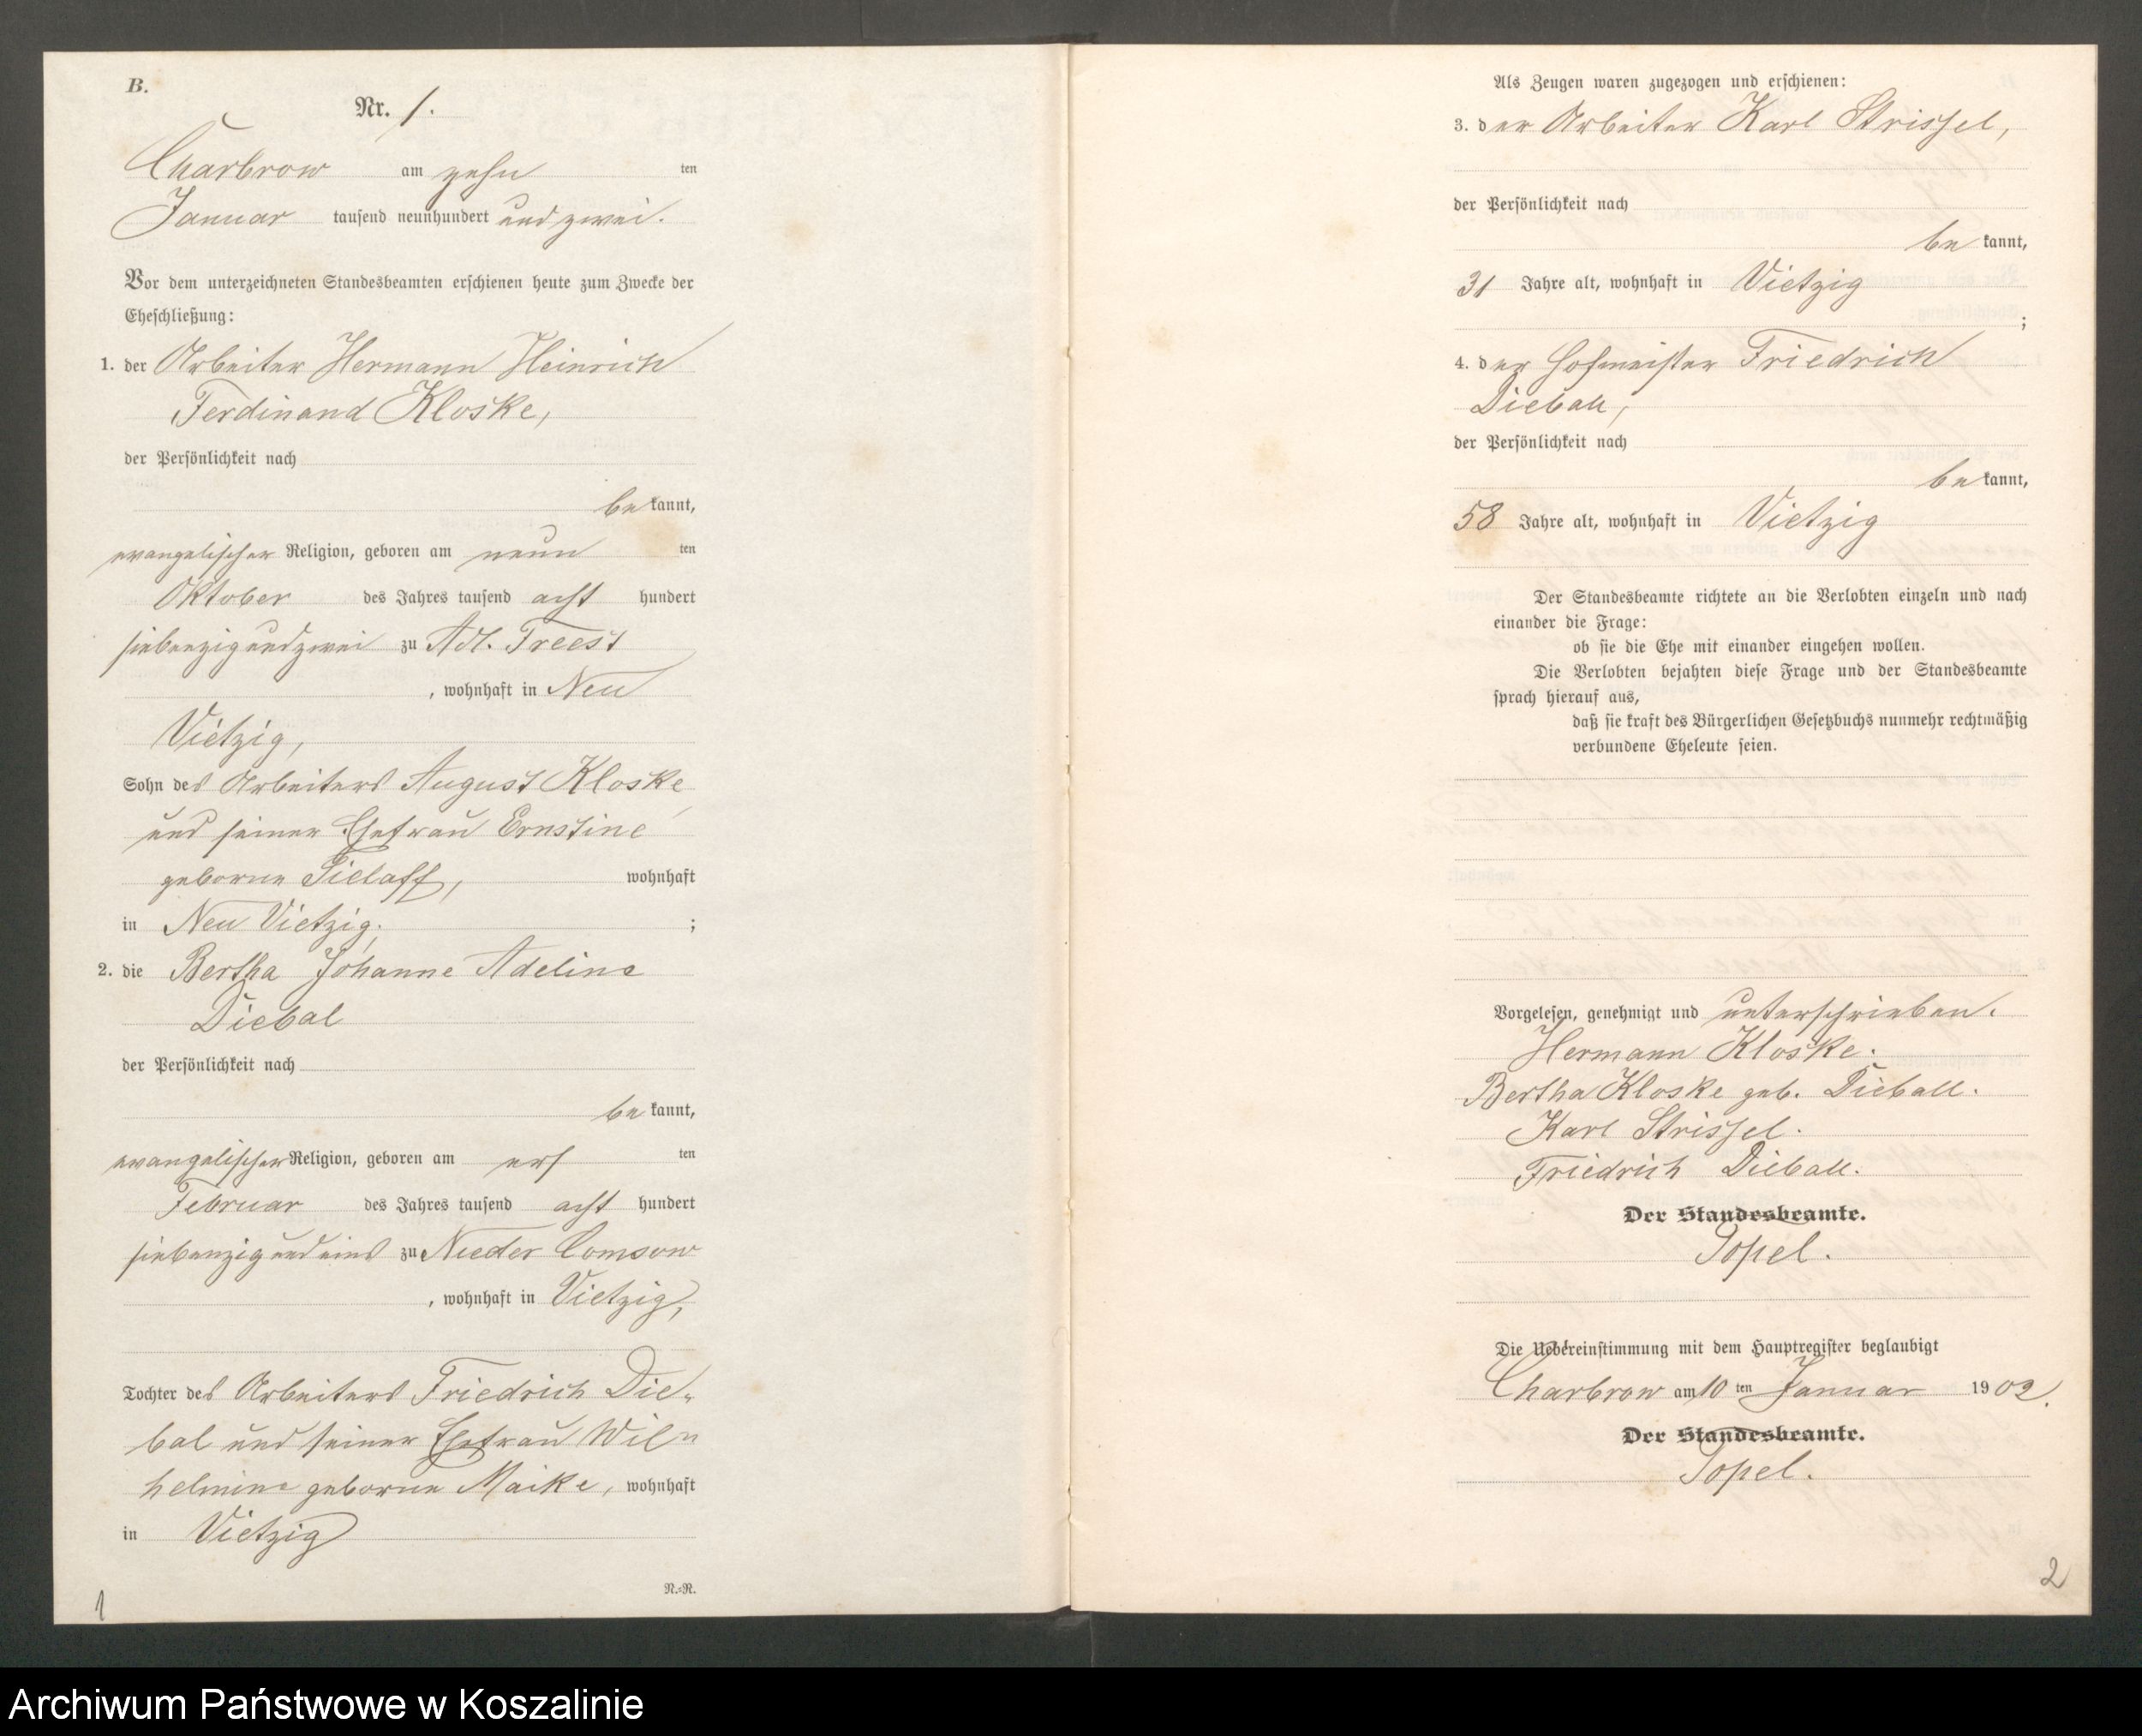 B.
Nr. 1.
Charbrow am zehn ten
Januar tausend neunhundert und zwei.
Vor dem unterzeichneten Standesbeamten erschienen heute zum Zwecke der
Eheschließung:
1. der Arbeiter Hermann Heinrich
Ferdinand Kloske,
der Persönlichkeit nach
be kannt,
evangelischer Religion, geboren am neun ten
Oktober des Jahres tausend acht hundert
siebenzig und zwei zu Adl. Freest
, wohnhaft in Neu
Vietzig,
Sohn des Arbeiters August Kloske
und seiner Ehefrau Ernstine
geborne Sielaff, wohnhaft
in Neu Vietzig. ;
2. die Bertha Johanne Adeline
Diebal
der Persönlichkeit nach
be kannt,
evangelischer Religion, geboren am ers ten
Februar des Jahres tausend acht hundert
siebenzig und eins zu Nieder Comsow
, wohnhaft in Vietzig,
Tochter des Arbeiters Friedrich Die-
bal und seiner Ehefrau Wil-
helmine geborne Maike, wohnhaft
in Vietzig
N.-R.
1
Als Zeugen waren zugezogen und erschienen:
3. der Arbeiter Karl Strissel,
der Persönlichkeit nach
be kannt,
31 Jahre alt, wohnhaft in Vietzig
;
4. der Hofmeister Friedrich
Dieball,
der Persönlichkeit nach
be kannt,
58 Jahre alt, wohnhaft in Vietzig
Der Standesbeamte richtete an die Verlobten einzeln und nach
einander die Frage:
ob sie die Ehe mit einander eingehen wollen.
Die Verlobten bejahten diese Frage und der Standesbeamte
sprach hierauf aus,
daß sie kraft des Bürgerlichen Gesetzbuchs nunmehr rechtmäßig
verbundene Eheleute seien.
Vorgelesen, genehmigt und unterschrieben.
Hermann Kloske.
Bertha Kloske geb. Dieball.
Karl Strissel.
Friedrich Dieball.
Der Standesbeamte.
Topel.
Die Uebereinstimmung mit dem Hauptregister beglaubigt
Charbrow am 10 ten Januar 1902.
Der Standesbeamte.
Topel.
2
Archiwum Państwowe w Koszalinie